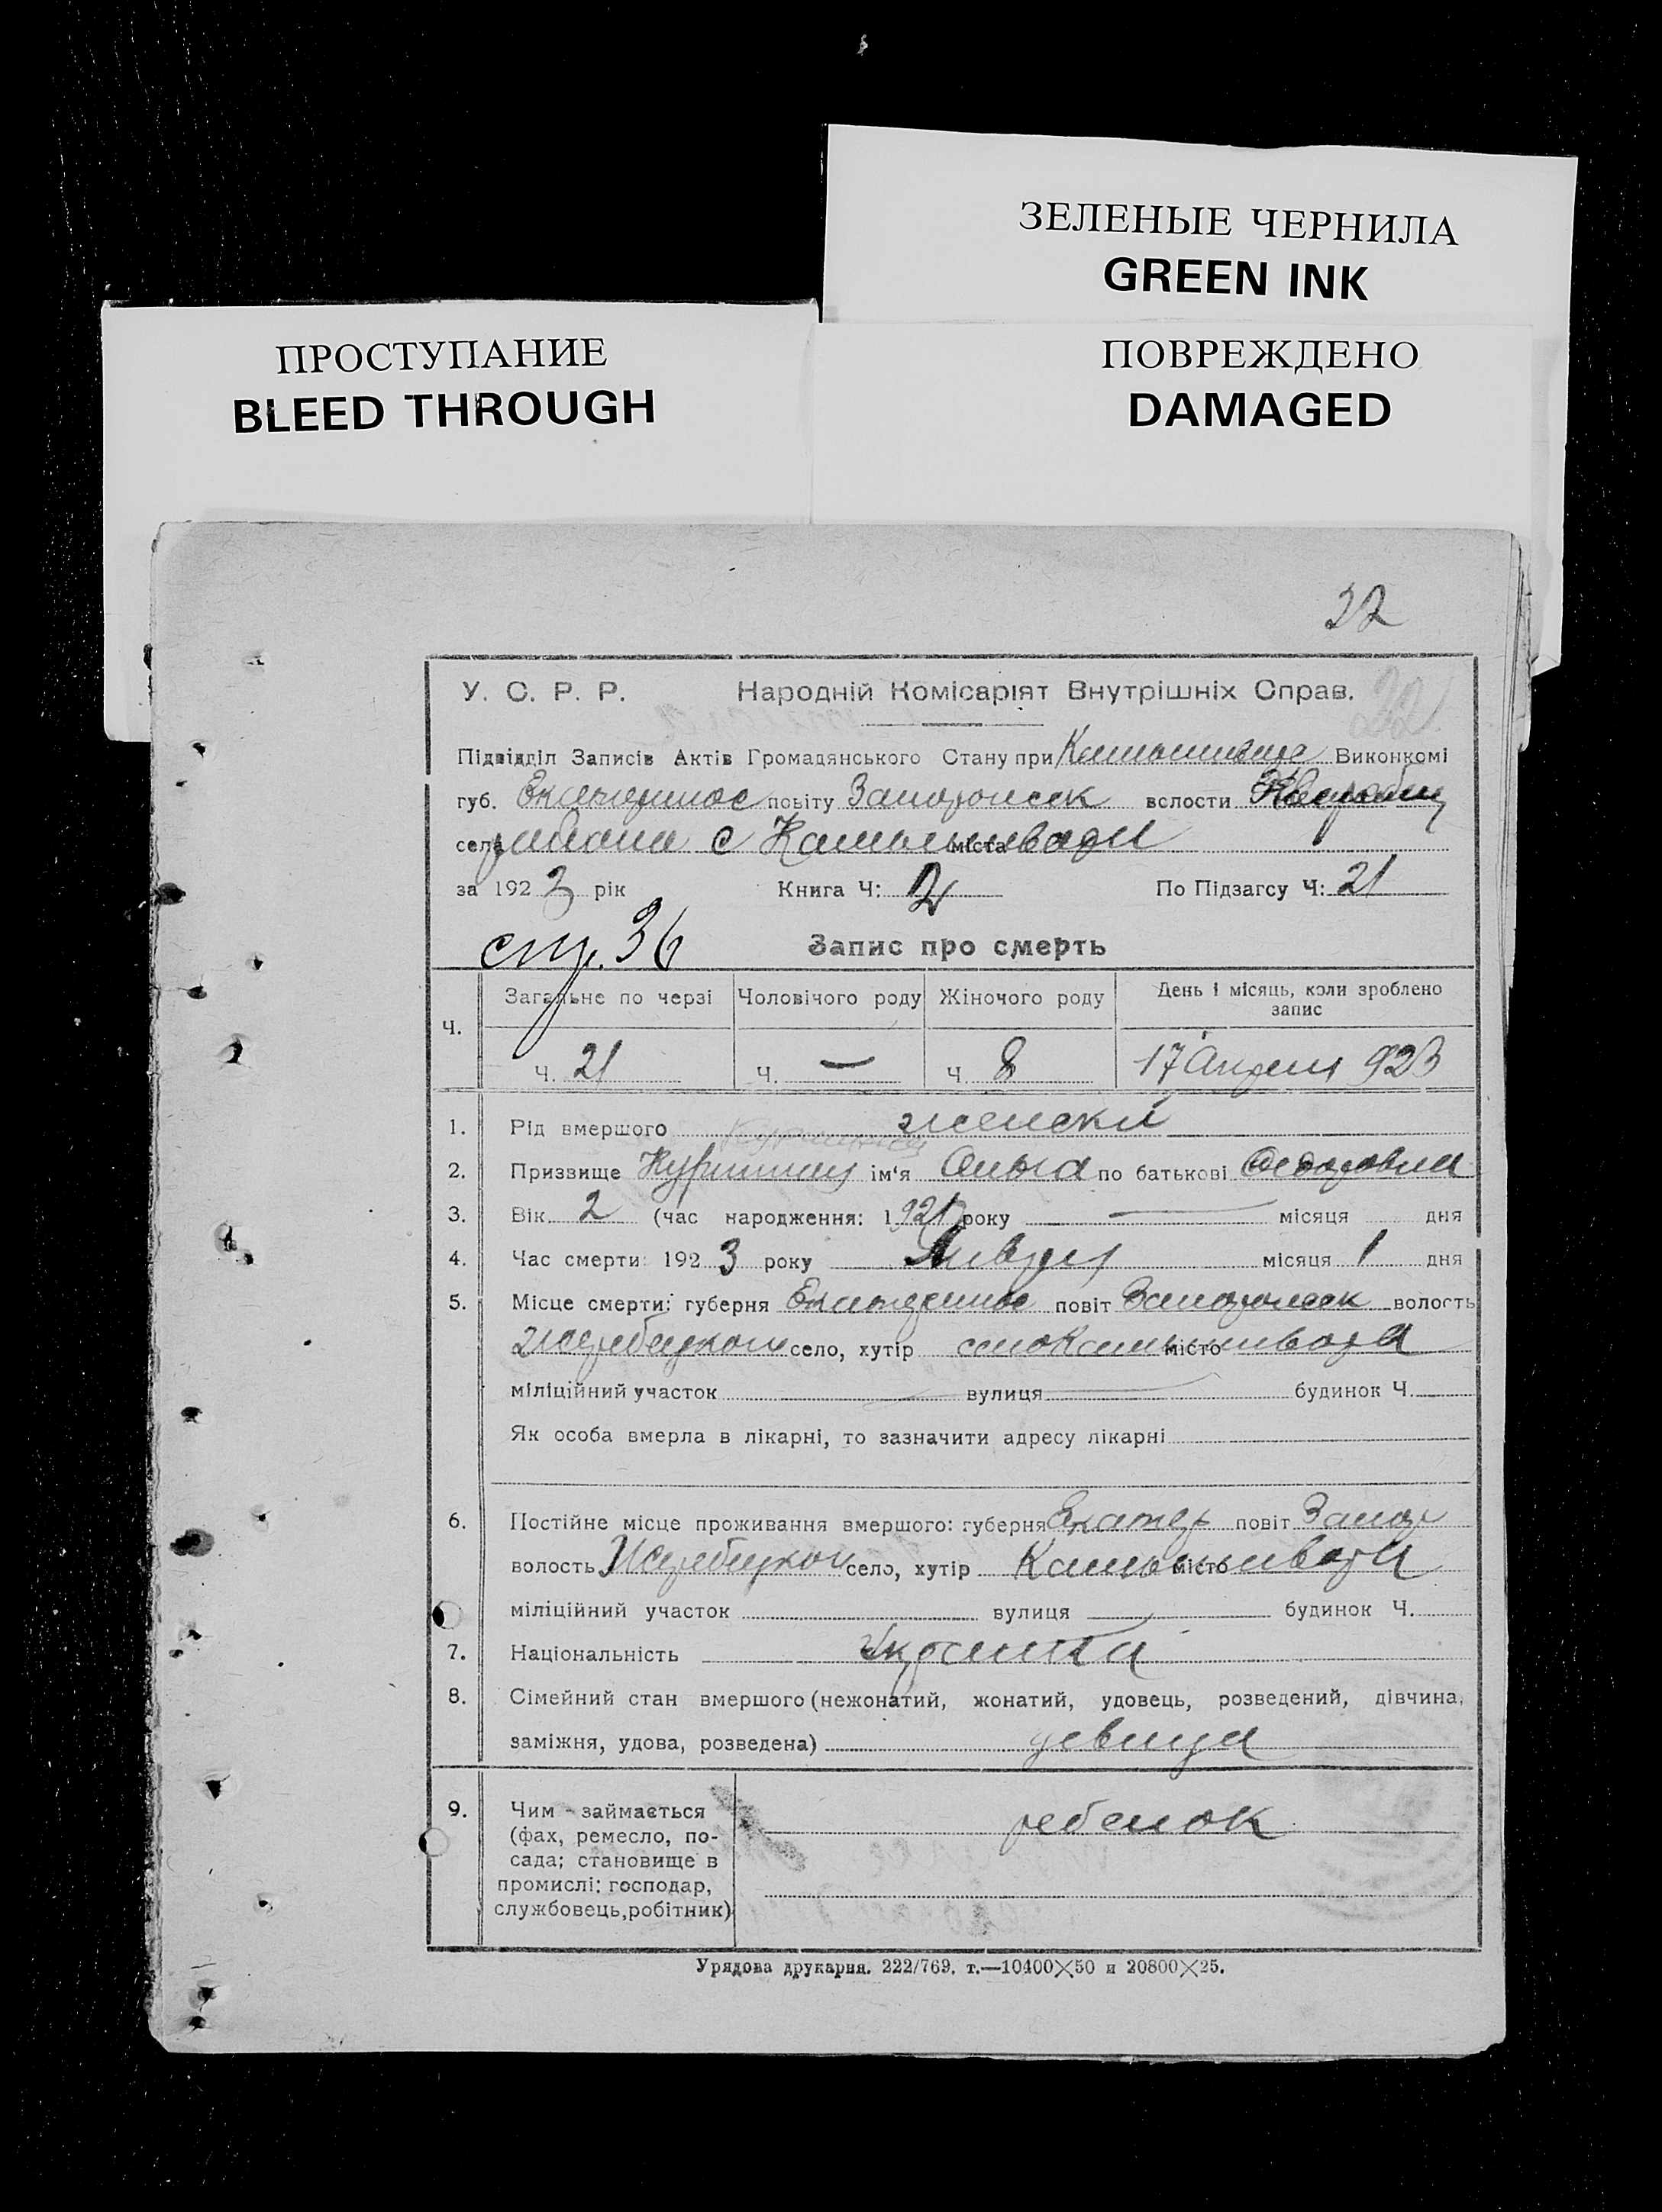 ЗЕЛЕНЫЕ ЧЕРНИЛА
GREEN INK
ПРОСТУПАНИЕ
BLEED THROUGH
ПОВРЕЖДЕНО
DAMAGED
22
22
У. С. Р. Р. Народній Комісаріят Внутрішніх Справ.
Підвідділ Записів Актів Громадянського Стану при Виконкомі
губ. повіту Запорожск волости
села района с міста
за 1923 рік Книга Ч: 2 По Підзагсу Ч: 21
стр. 36 Запис про смерть
Ч. Загальне по черзі Чоловічого роду Жіночого роду День і місяць, коли зроблено запис
Ч. 21 Ч. — Ч 8 17 Апреля 923
1. Рід вмершого женски
2. Призвище ім‘я Ольга по батькові Федоровна
3. Вік 2 (час народження: 1921 року — місяця дня
4. Час смерти: 1923 року Января місяця 1 дня
5. Місце смерти: губерня повіт Запорожск волость
село, хутір місто
міліційний участок вулиця будинок Ч.
Як особа вмерла в лікарні, то зазначити адресу лікарні
6. Постійне місце проживання вмершого: губерня Екатер повіт Запор
волость село, хутір місто
міліційний участок вулиця будинок Ч.
7. Національність
8. Сімейний стан вмершого (нежонатий, жонатий, удовець, розведений, дівчина,
заміжня, удова, розведена) девица
9. Чим - займається ребенок
(фах, ремесло, по-
сада; становище в
промислі: господар,
службовець, робітник)
Урядова друкарня. 222/769. т.—10400×50 и 20800×25.